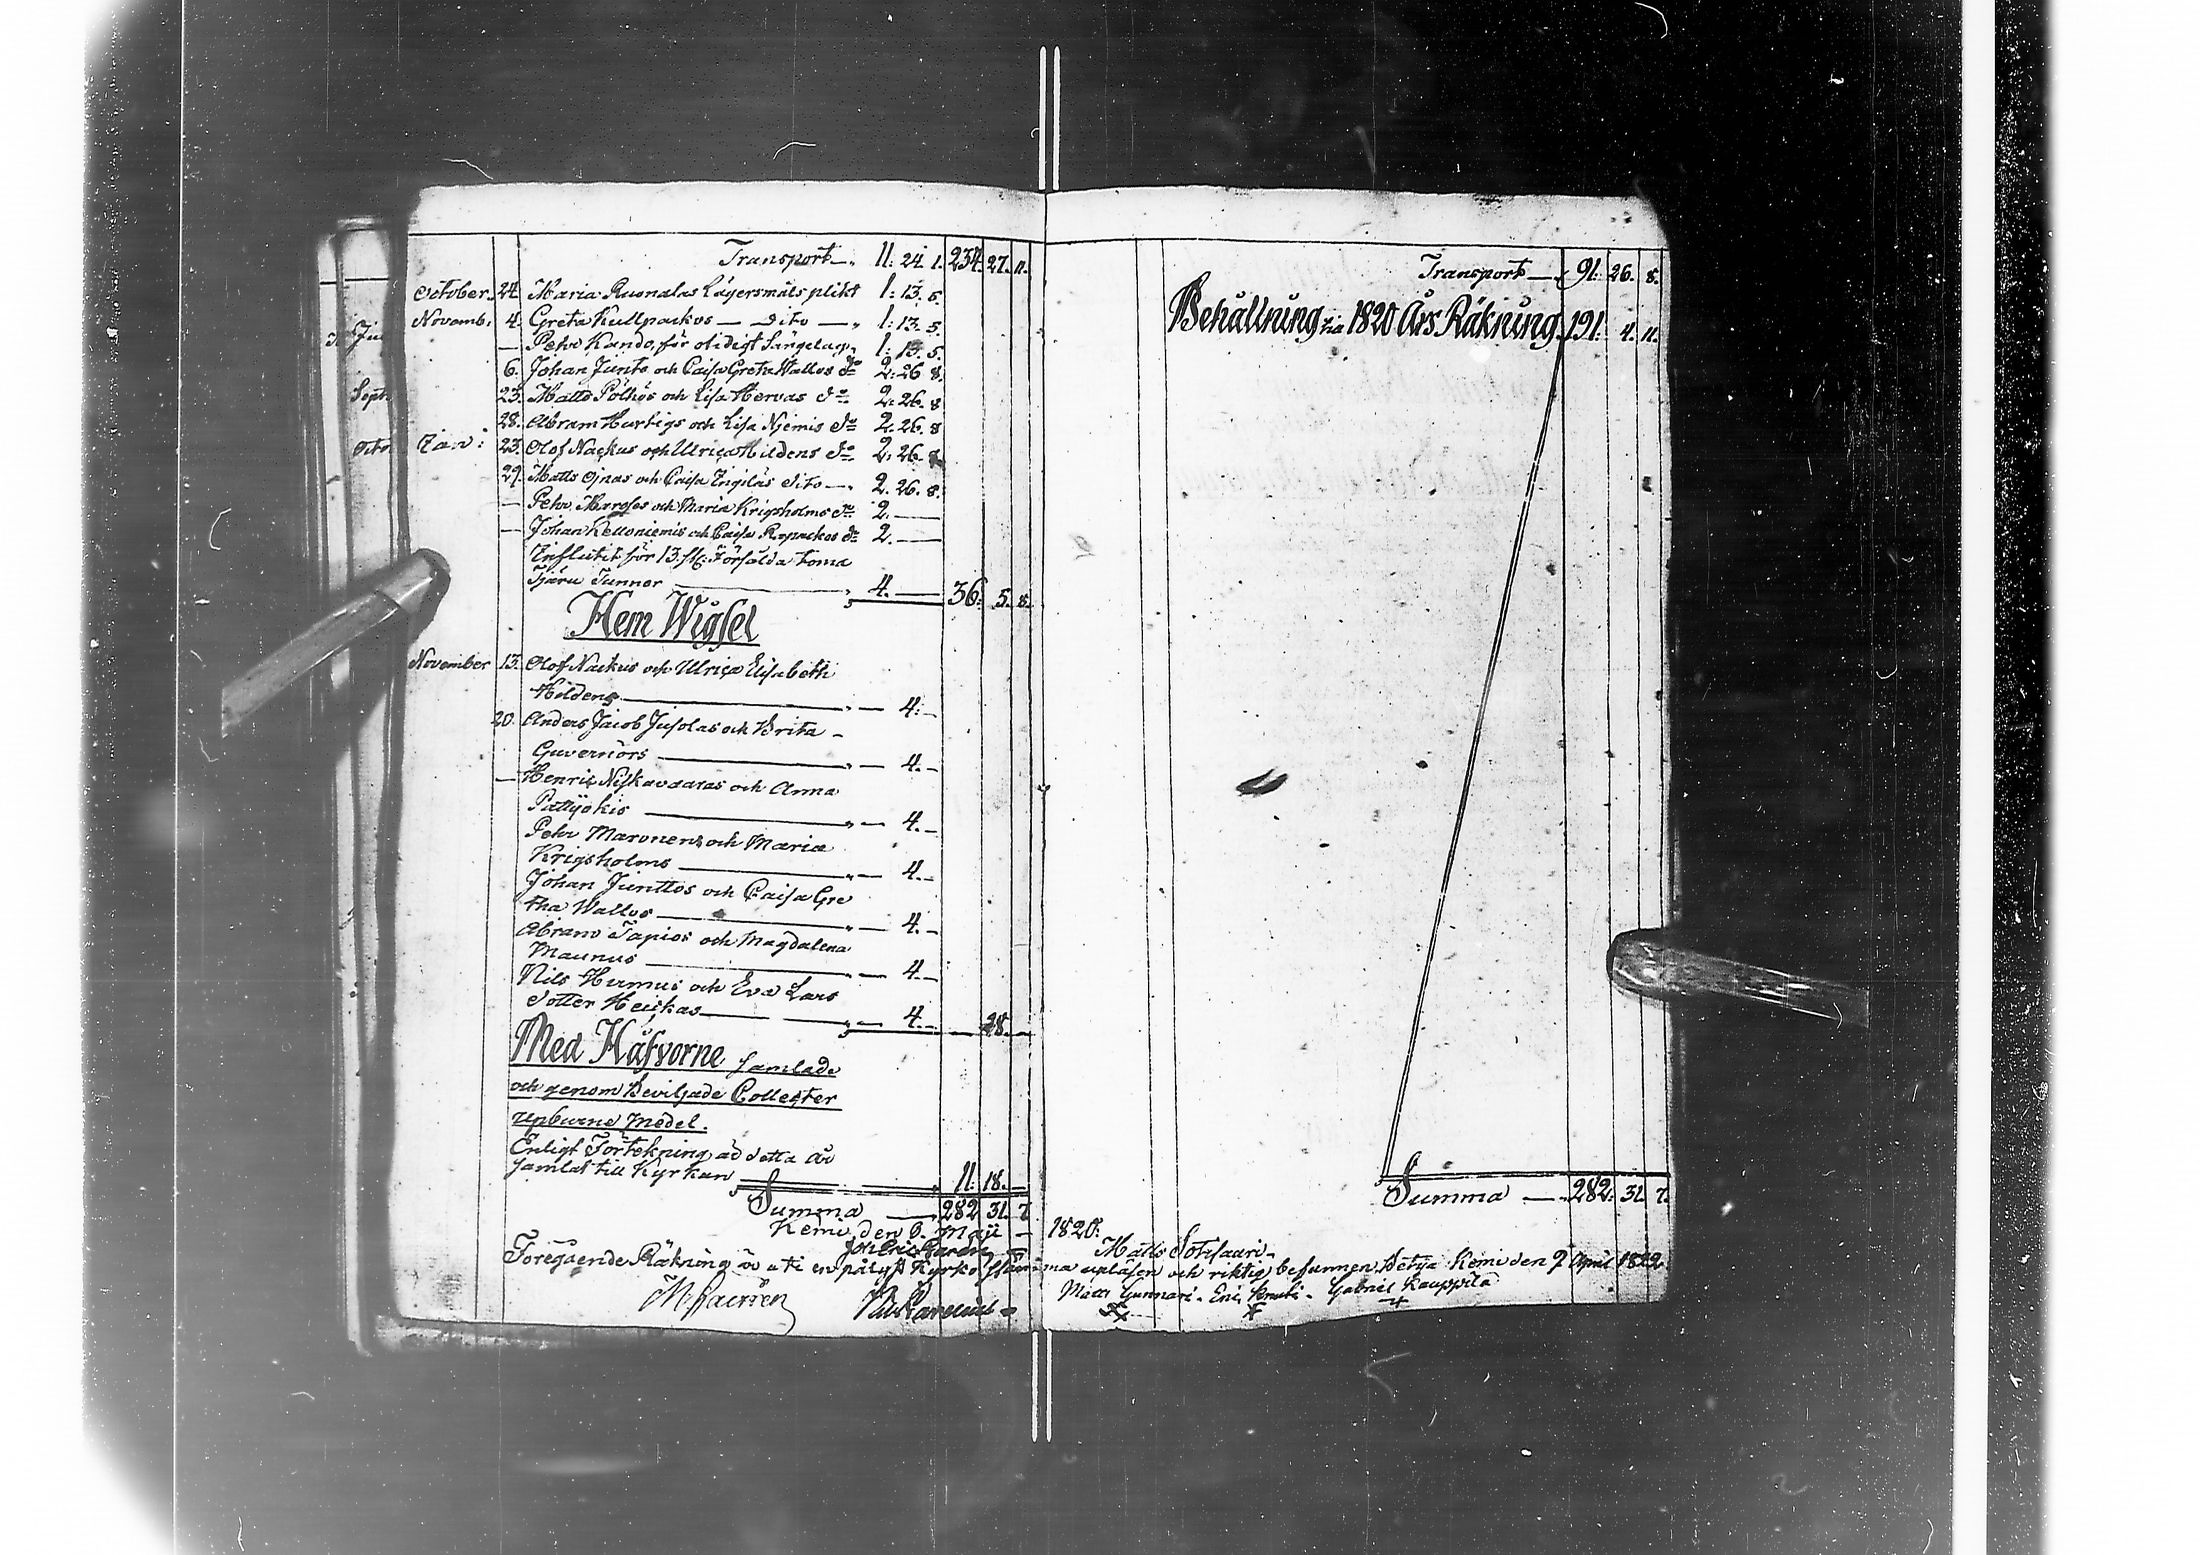 Transport 11. 24. 1. 234. 27. 11.
October. 24. Maria Ruonalas Lägersmåls plikt 1: 13. 5.
Novemb: 4. Greta Kullpackos — dito — 1: 13. 5.
— Pehr Kando, för otidigt Sängelag 1: 13. 5.
6. Johan Junto och Caisa Greta Wallos do 2: 26 8.
23. Matts Pölhös och Lisa Hervas do 2: 26. 8
28. Abram Hurtigs och Lisa Niemis do 2. 26. 8
Jan: 23. Olof Nackus och Ulrica Hildens do 2. 26 8
29. Matts Ojnas och Caisa Zngiläs dito — 2. 26. 8.
— Pehr och Maria Krigsholms do 2. —
— Johan Kelloniemis och Caisa do 2. —
Influtit för 13 st: Försålda toma
Tjäru Tunnor 4. — 36. 5. 8.
Hem Wigsel
November 13. Olof Nackus och Ulrica Elisabeth
Hildens — 4. —
20. Anders Jacob Jusolas och Brita —
Guvernörs — 4. —
— Henric Niskavaaras och Anna
Pattijokis — 4. —
Pehr Maronens och Maria
Krigsholms — 4. —
Johan Junttos och Caisa Gre
tha Wallos — 4. —
Abram Tapios och Magdalena
Maunus — 4. —
Nils Hermus och Eva Lars
dotter Heickas — 4. — 28. —
Med Håfvorne samlade
och genom Beviljade Collecter
upburne Medel.
Enligt Förtekning äd detta år
samlat till Kyrkan 11. 18. —
Summa — 282 31. 7.
Kemi den 6. Maji — 1820.
Joh Eric
Matts Sotisaari
Foregående Räkning är uti en pålyst Kyrko Stämma upläsen och riktig befunnen, Betyg. Kemi den 7 April 1822.
Matts Gunnari. Eric Knuti. Gabriel Kauppila
Transport — 91: 26. 8.
Behållning til 1820 Års Räkning. 191. 4. 11.
Summa — 282. 31. 7.